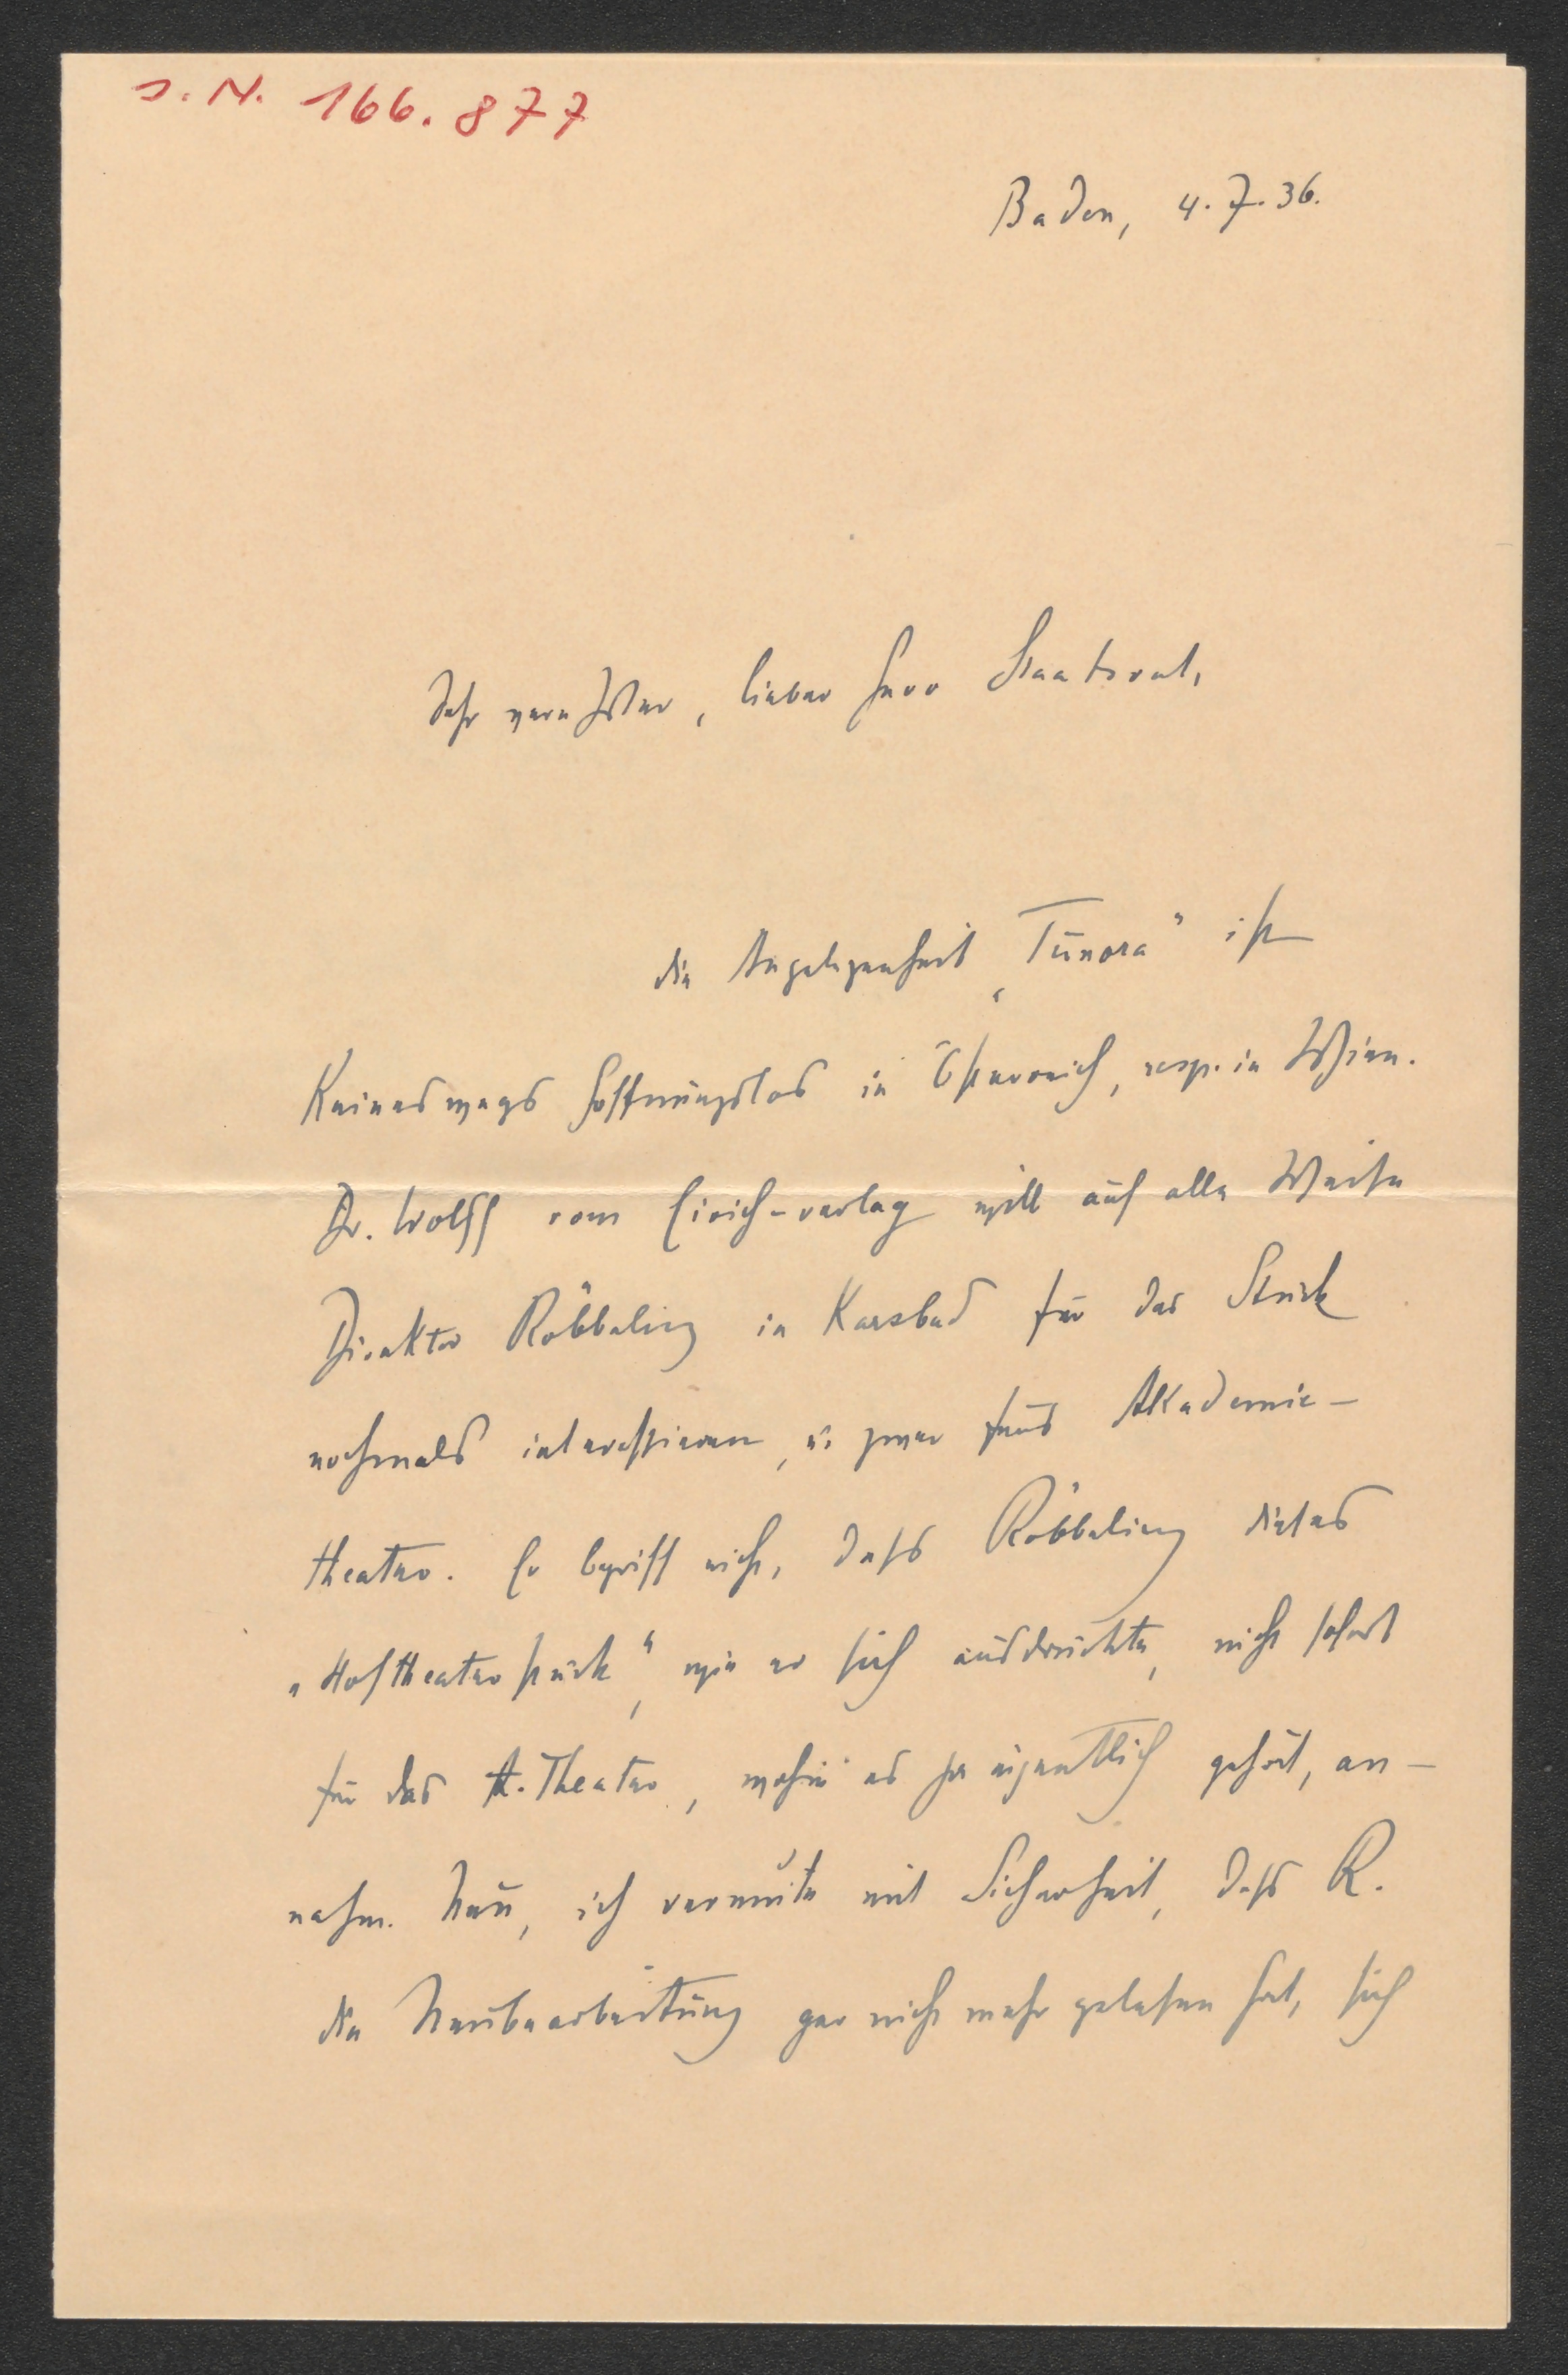 J. N. 166.877
Baden, 4.7.36.
Sehr verehrter, lieber Herr Staatsrat,
die Angelegenheit „Tunora“ ist
Keineswegs hoffnungslos in Österreich, resp. in Wien.
Dr. Wolff vom Eirich-verlag will auf alle Weise
Direktor Röbbeling in Karsbad für das Stück
nochmals interessieren, u. zwar fürs Akademie-
theater. Er begriff nicht, dass Röbbeling dieses
„Hoftheaterstück“, wie er sich ausdrückte, nicht sofort
für das A.Theater, wohin es ja eigentlich gehört, an-
nahm. Nun, ich vermute mit Sicherheit, dass R.
die Neubearbeitung gar nicht mehr gelesen hat, sich